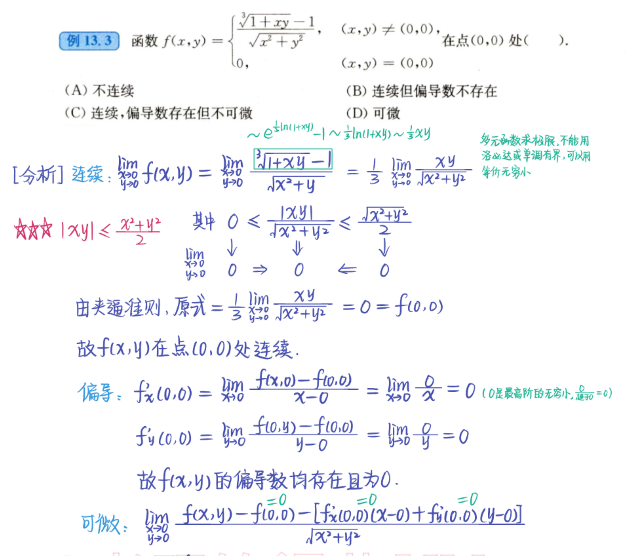 例 13.3 函数 f(x,y) = { (∛(1+xy) − 1)/√(x²+y²), (x,y) ≠ (0,0), 0, (x,y) = (0,0) 在点(0,0) 处( ).
(A) 不连续 (B) 连续但偏导数不存在
(C) 连续,偏导数存在但不可微 (D) 可微
~ e^{⅓ln(1+xy)} −1 ~ ⅓ln(1+xy) ~ ⅓xy
多元函数求极限,不能用
洛必达或单调有界,可以用
等价无穷小
[分析] 连续: lim_{x→0,y→0} f(x,y) = lim_{x→0,y→0} (∛(1+xy) −1)/√(x²+y) = 1/3 lim_{x→0,y→0} xy/√(x²+y²)
☆☆☆ |xy| ≤ (x²+y²)/2 其中 0 ≤ |xy|/√(x²+y²) ≤ √(x²+y²)/2
↓ ⇓ ↓
lim_{x→0,y→0} 0 ⇒ 0 ⇐ 0
由夹逼准则,原式 = 1/3 lim_{x→0,y→0} xy/√(x²+y²) = 0 = f(0,0)
故f(x,y)在点(0,0)处连续.
偏导: f'x(0,0) = lim_{x→0} (f(x,0)−f(0,0))/(x−0) = lim_{x→0} 0/x = 0 (0是最高阶的无穷小,
f'y(0,0) = lim_{y→0} (f(0,y)−f(0,0))/(y−0) = lim_{y→0} 0/y = 0
故f(x,y)的偏导数均存在且为0.
=0 =0 =0
可微: lim_{x→0,y→0} (f(x,y)−f(0,0)−[f'x(0,0)(x−0)+f'y(0,0)(y−0)])/√(x²+y²)